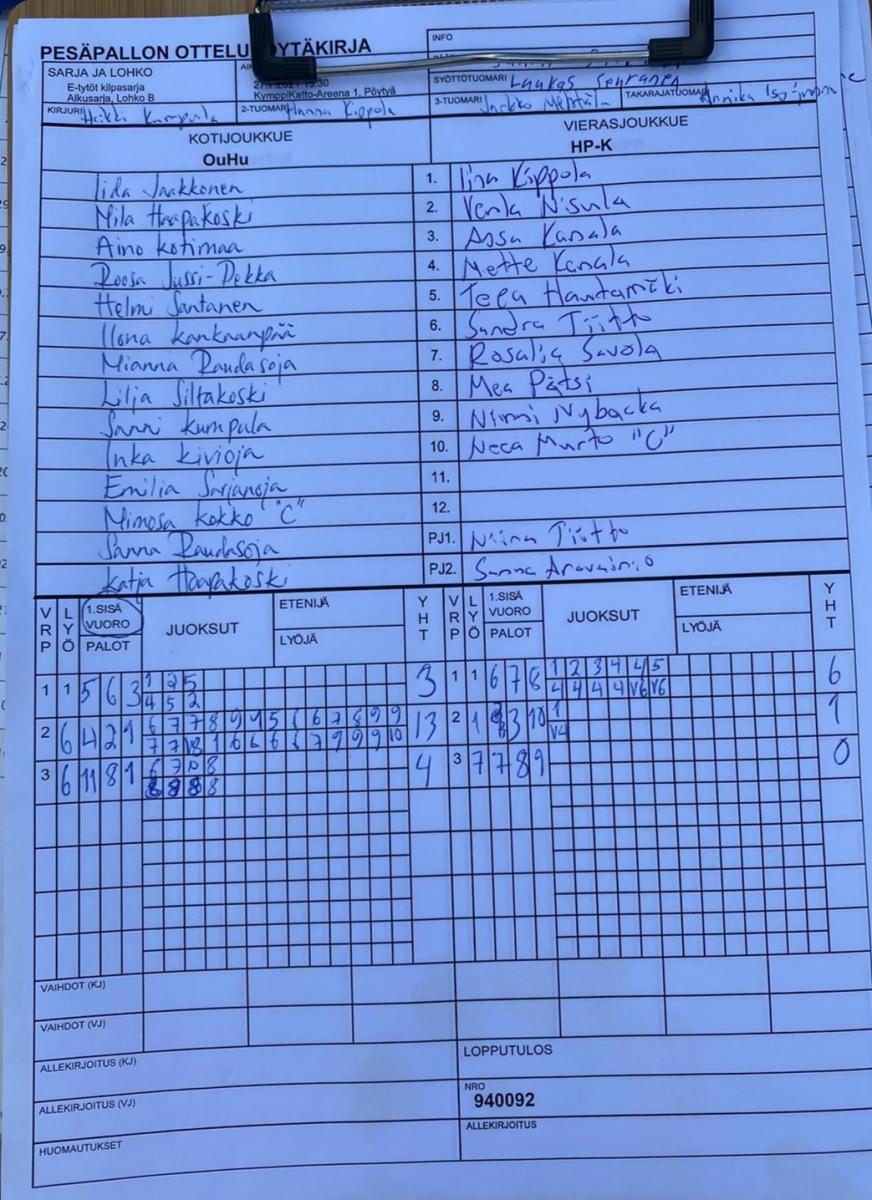 INFO
PESÄPALLON OTTELUPÖYTÄKIRJA
SARJA JA LOHKO
E-tytöt kilpasarja
Alkusarja, Lohko B
KymppiKatto-Areena 1, Pöytyä
SYÖTTÖTUOMARI
KIRJURI Heikki Kumpula
2-TUOMARI Hanna Kippola
3-TUOMARI Jarkko
TAKARAJATUOMARI Annika
KOTIJOUKKUE
OuHu
VIERASJOUKKUE
HP-K
Iida Jaakkonen 1. Iina Kippola
Mila Haapakoski 2. Venla Nisula
Aino Kotimaa 3. Assa Kanala
Roosa Jussi-Pekka 4. Mette Kanala
Helmi Santanen 5. Teea Hautamäki
Ilona Kankaanpää 6. Sandra Tiitto
Mianna Raudasoja 7. Rosalia Savola
Lilja Siltakoski 8. Mea Pätsi
Sanni Kumpula 9. Nimmi Nybacka
Inka Kivioja 10. Neea Murto "C"
Emilia Sarjanoja 11.
Mimosa Kokko "C" 12.
Sanna Raudasoja PJ1. Niina Tiitto
Katja Haapakoski PJ2. Sanna
VRP LYÖ 1.SISÄ VUORO PALOT JUOKSUT ETENIJÄ LYÖJÄ YHT VRP LYÖ 1.SISÄ VUORO PALOT JUOKSUT ETENIJÄ LYÖJÄ YHT
1 1 5 6 3 1 2 5 3 1 1 6 7 8 1 2 3 4 4 5 6
4 5 2 4 4 4 4 V6 V6
2 6 4 2 1 6 7 7 8 9 9 5 6 6 7 8 9 9 13 2 1 3 10 1 1
7 7 8 1 6 6 6 6 7 9 9 9 10 V4
3 6 11 8 1 6 7 8 4 3 7 7 8 9 0
8 8 8 8
VAIHDOT (KJ)
VAIHDOT (VJ)
ALLEKIRJOITUS (KJ)
LOPPUTULOS
ALLEKIRJOITUS (VJ)
NRO
940092
HUOMAUTUKSET
ALLEKIRJOITUS